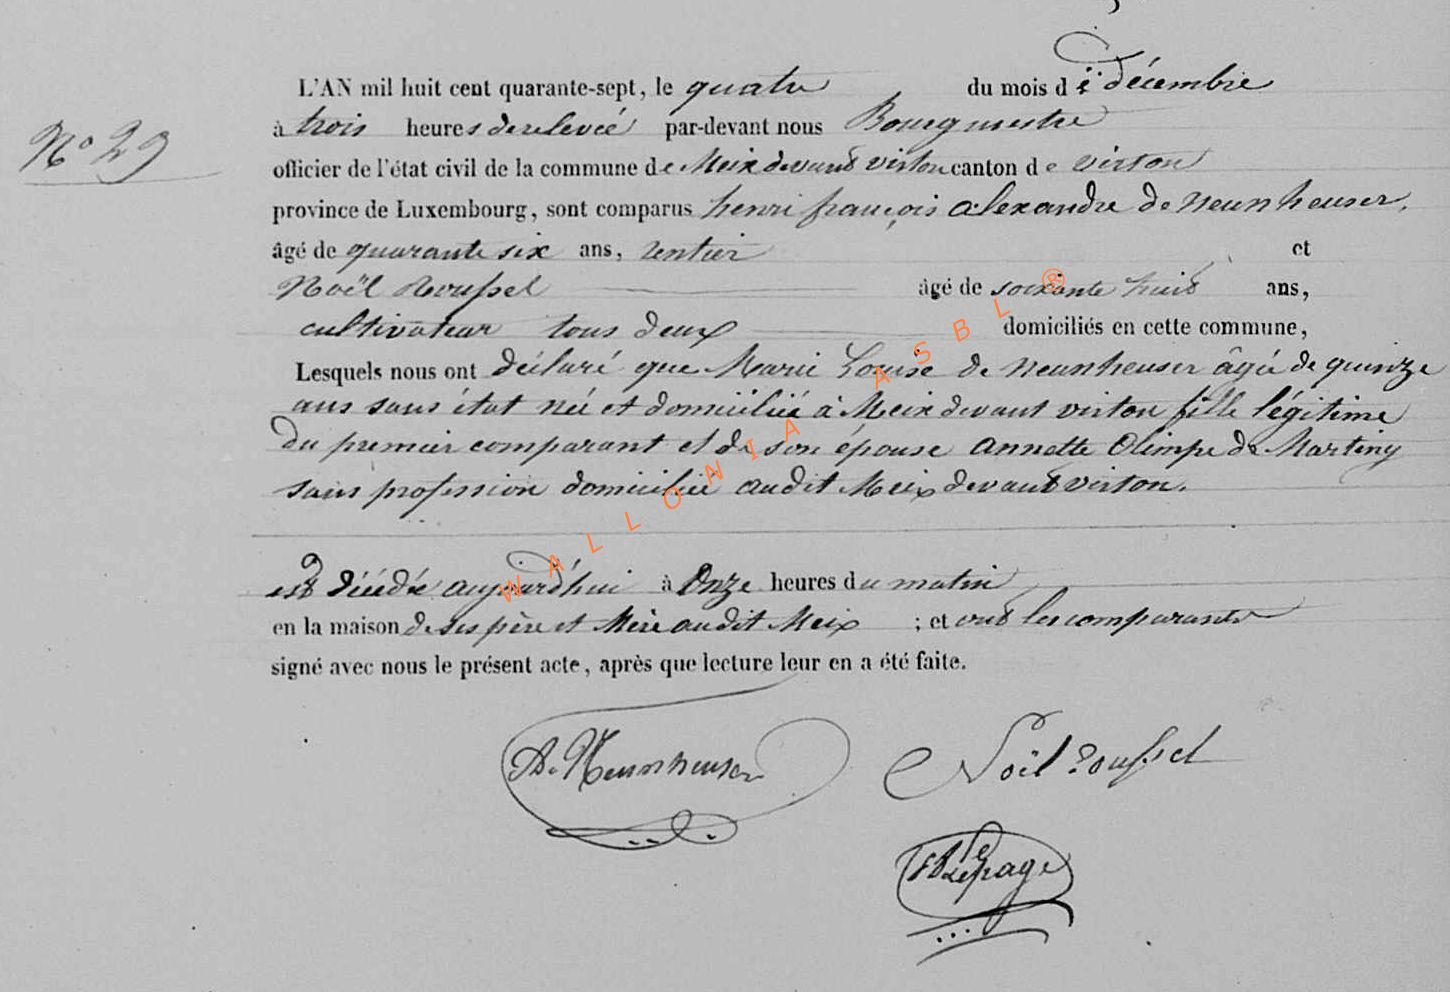 L'AN mil huit cent quarante-sept, le quatre du mois de décembre
N° 29
à trois heures de relevée par-devant nous Bourgmestre
officier de l'état civil de la commune de Meix devant virton canton de virton
province de Luxembourg, sont comparus henri françois alexandre de Neunheuser,
âgé de quarante six ans, rentier et
Noël Roussel âgé de soixante huit ans,
cultivateur tous deux domiciliés en cette commune,
Lesquels nous ont déclaré que Marie Louise de Neunheuser âgée de quinze
ans sans état née et domiciliée à Meix devant virton fille légitime
du premier comparant et de son épouse annette Olimpe de Martiny
sans profession domiciliée audit Meix devant virton.
est décédée aujourd'hui à Onze heures du matin
en la maison de ses père et Mère audit Meix ; et ont les comparants
signé avec nous le présent acte, après que lecture leur en a été faite.
A. Neunheuser Noël Roussel
Lepage
WALLONIA ASBL ®